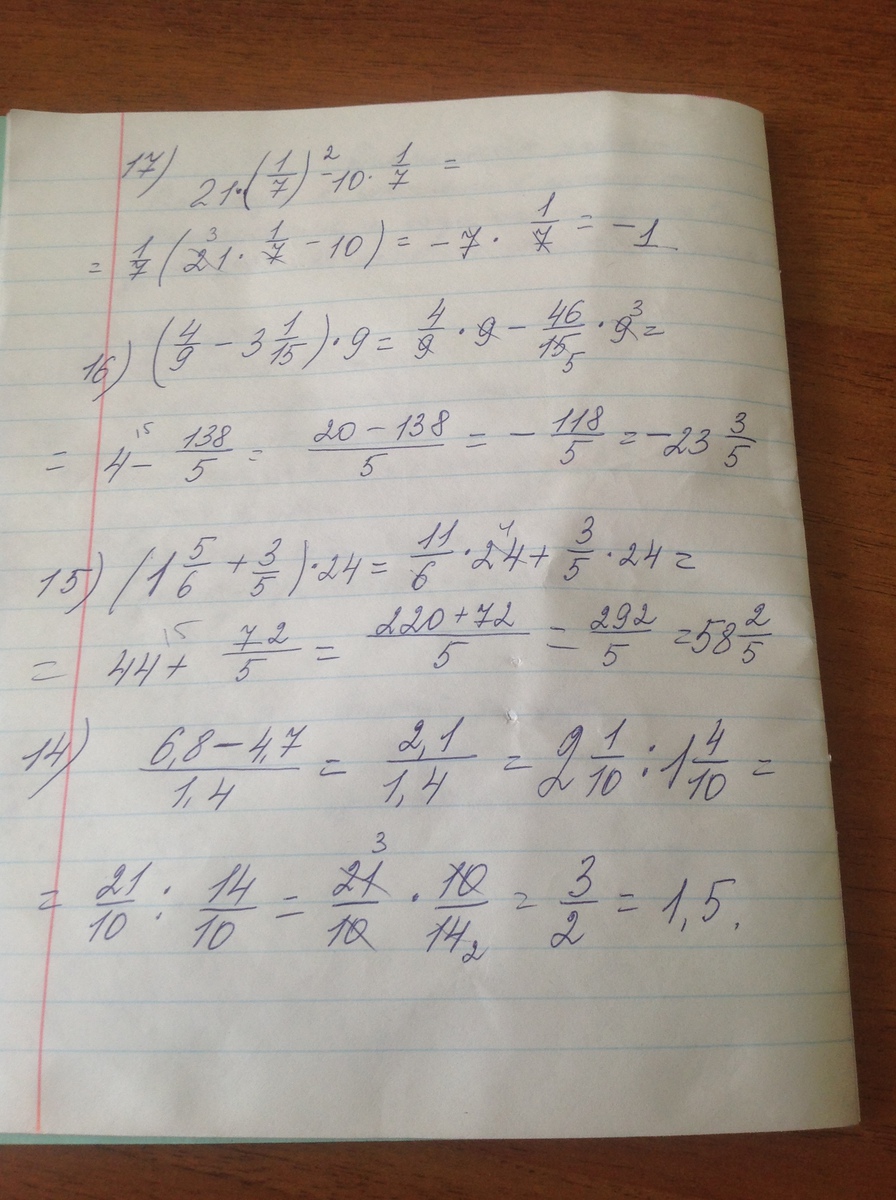 17) 21·(1/7)² - 10 · 1/7 =
= 1/7 (21³ · 1/7 - 10) = -7 · 1/7 = -1
16) (4/9 - 3 1/15) · 9 = 4/9 · 9 - 46/15 5 · 9³ =
= 4 - ¹⁵ 138/5 = 20-138/5 = - 118/5 = -23 3/5
15) (1 5/6 + 3/5) · 24 = 11/6 · 24⁴ + 3/5 · 24 =
= 44 + ¹⁵ 72/5 = 220+72/5 = 292/5 = 58 2/5
14) 6,8-4,7/1,4 = 2,1/1,4 = 2 1/10 : 1 4/10 =
= 21/10 : 14/10 = 21³/10 · 10/14 2 = 3/2 = 1,5.